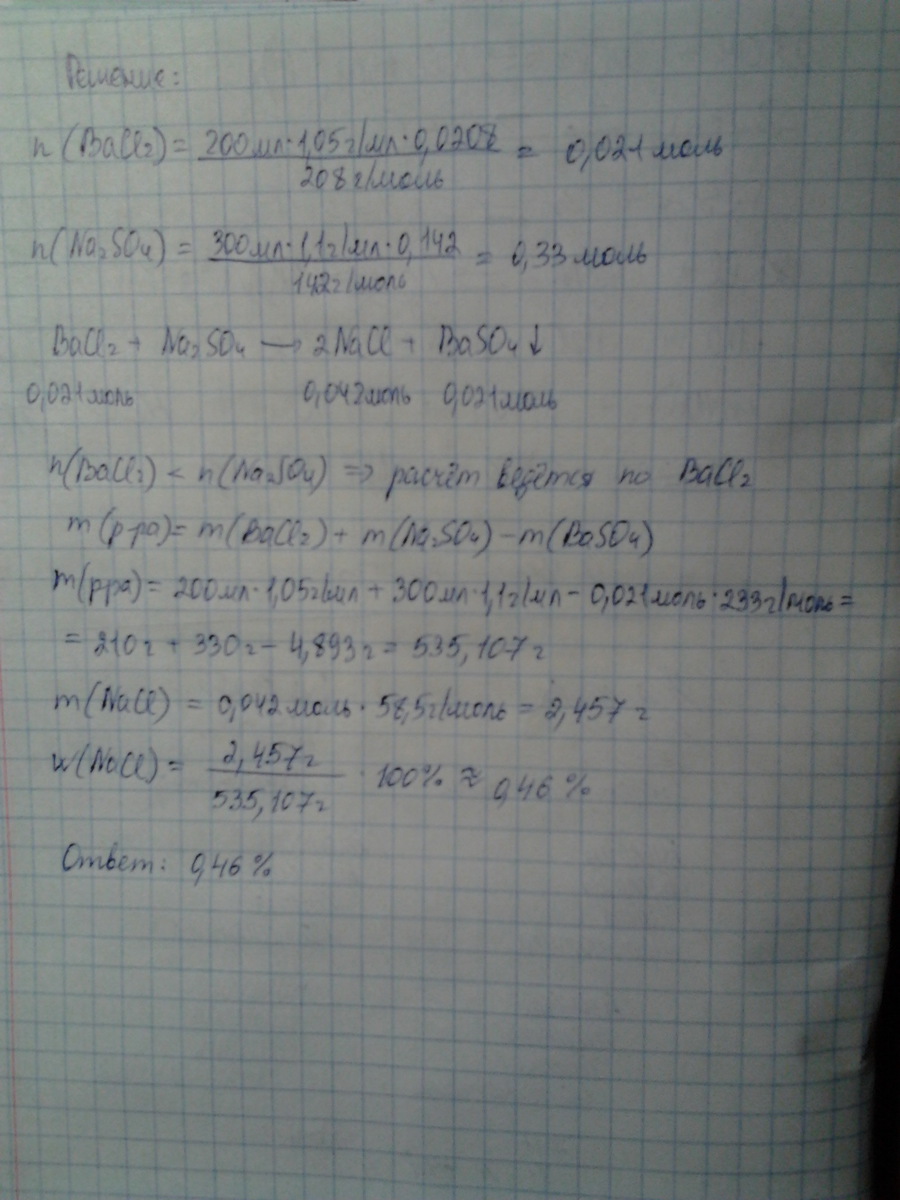 Решение:
n(BaCl₂) = 200мл·1,05г/мл·0,0208 / 208г/моль = 0,021 моль
n(Na₂SO₄) = 300мл·1,1г/мл·0,142 / 142г/моль = 0,33 моль
BaCl₂ + Na₂SO₄ → 2NaCl + BaSO₄↓
0,021 моль 0,042моль 0,021моль
n(BaCl₂) < n(Na₂SO₄) => расчёт ведётся по BaCl₂
m(р-ра) = m(BaCl₂) + m(Na₂SO₄) - m(BaSO₄)
m(рра) = 200мл·1,05г/мл + 300мл·1,1г/мл - 0,021моль·233г/моль =
= 210г + 330г - 4,893г = 535,107г
m(NaCl) = 0,042моль·58,5г/моль = 2,457г
w(NaCl) = 2,457г / 535,107г · 100% ≈ 0,46%
Ответ: 0,46%